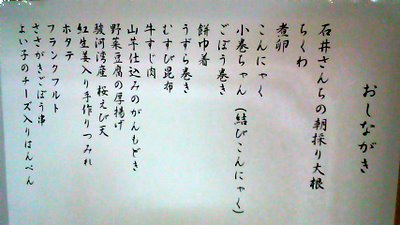 おしながき
石井さんちの朝採り大根
ちくわ
煮卵
こんにゃく
小巻ちゃん（結びこんにゃく）
ごぼう巻き
餅巾着
うずら巻き
むすび昆布
牛すじ肉
山芋仕込みのがんもどき
野菜豆腐の厚揚げ
駿河湾産 桜えび天
紅生姜入り手作りつみれ
ホタテ
フランクフルト
ささがきごぼう串
よい子のチーズ入りはんぺん